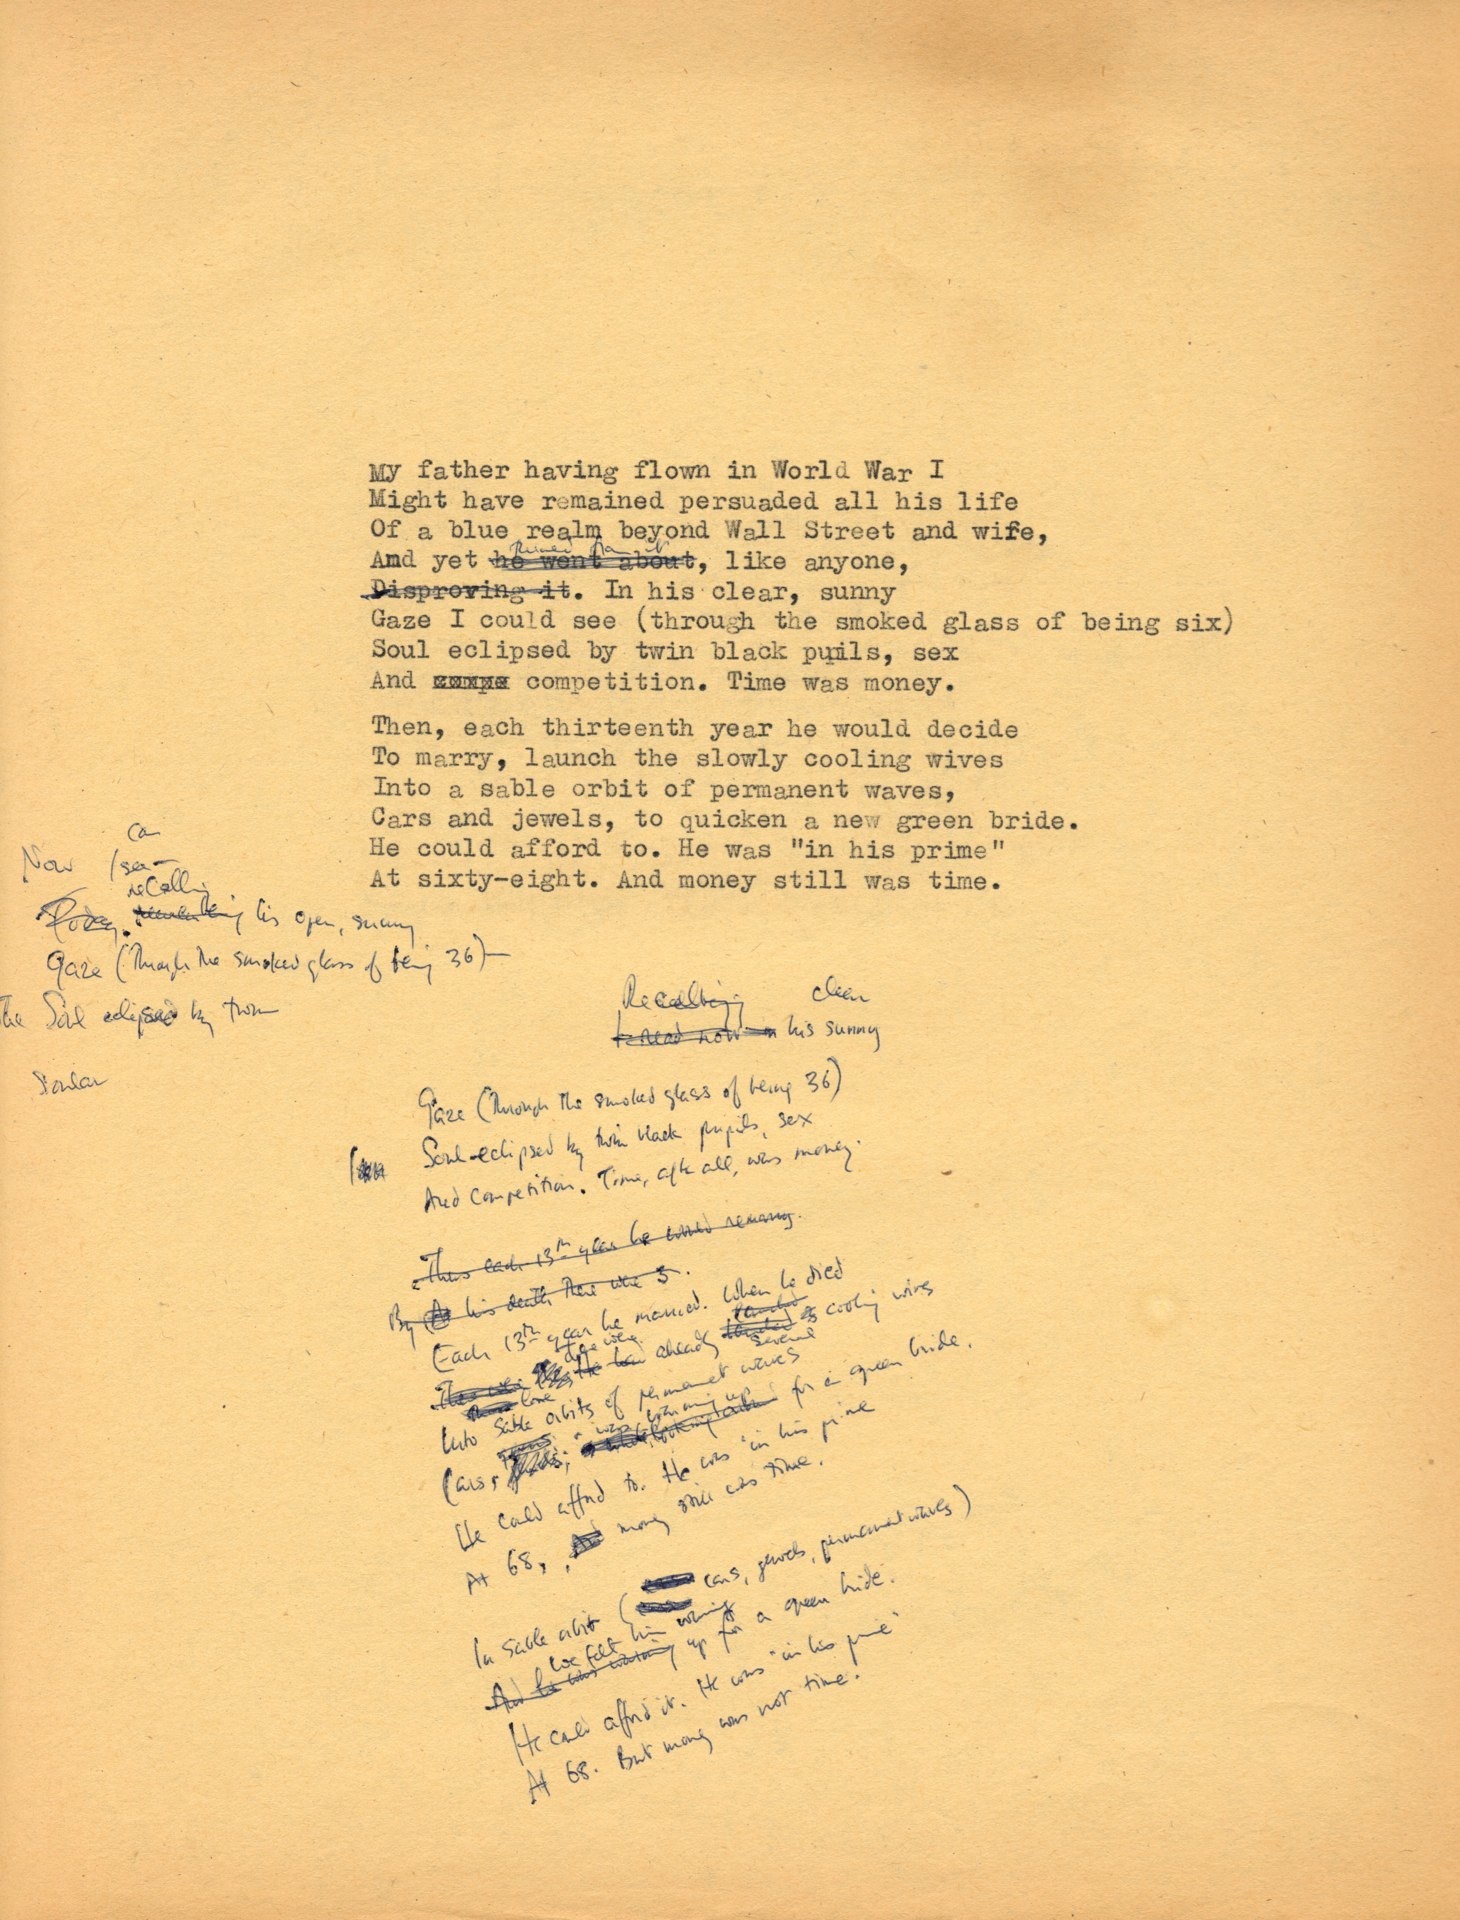 My father having flown in World War I
Might have remained persuaded all his life
Of a blue realm beyond Wall Street and wife,
And yet he went about, like anyone,
Disproving it. In his clear, sunny
Gaze I could see (through the smoked glass of being six)
Soul eclipsed by twin black pupils, sex
And compe competition. Time was money.
Then, each thirteenth year he would decide
To marry, launch the slowly cooling wives
Into a sable orbit of permanent waves,
Cars and jewels, to quicken a new green bride.
He could afford to. He was "in his prime"
At sixty-eight. And money still was time.
can
Now I see
recalling
Today, remembering his open, sunny
Gaze (through the smoked glass of being 36)—
The Soul eclipsed by twin
Similar
Recalling clear
I read now in his sunny
Gaze (through the smoked glass of being 36)
Soul eclipsed by twin black pupils, sex
And Competition. Time, after all, was money.
Thus each 13th year he would remarry.
By At his death there were 5.
Each 13th year he married. When he died
There were he had already several cooling wives
Into sable orbits of permanent waves
was warming up
Cars, for a green bride.
He could afford to. He was "in his prime
At 68, And money still was time.
In sable orbit (cars, jewels, permanent waves)
We felt him warming
And he was warming up for a green bride.
He could afford it. He was "in his prime"
At 68. But money was not time.